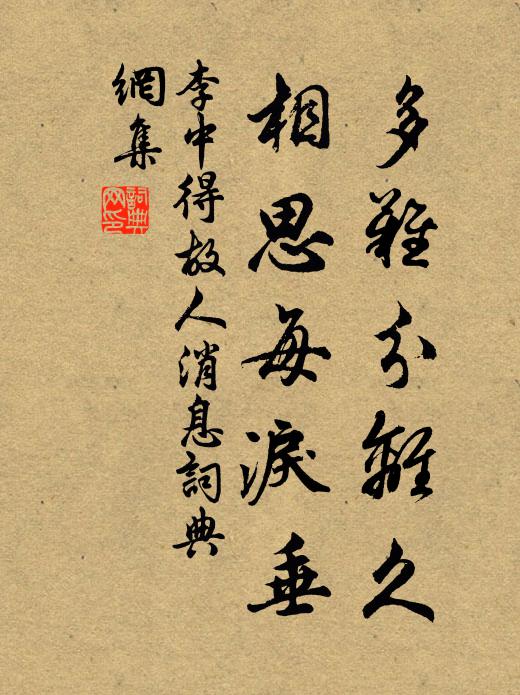 多難分離久
相思每淚垂
李中得故人消息詞典
網集
詞典
网印